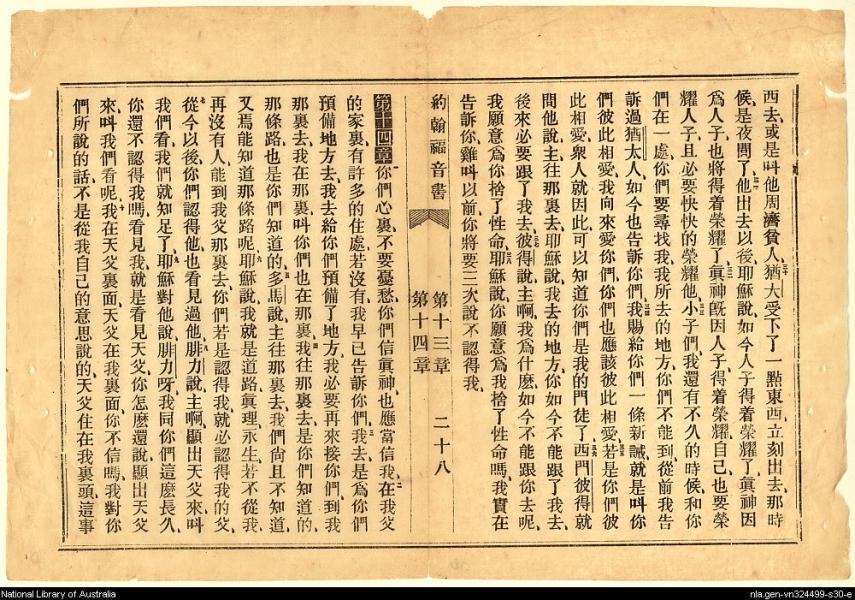 西去、或是叫他周濟貧人、猶大受下了一點東西、立刻出去、那時
候是夜間了、他出去以後、耶穌說、如今人子得着榮耀了、眞神因
爲人子也將得着榮耀了、眞神旣因人子得着榮耀、自己也要榮
耀人子、且必要快快的榮耀他、小子們、我還有不久的時候、和你
們在一處、你們要尋找我、我所去的地方、你們不能到、從前我告
訴過猶太人、如今也告訴你們、我賜給你們一條新誡、就是叫你
們彼此相愛、我向來愛你們、你們也應該彼此相愛、若是你們彼
此相愛、衆人就因此可以知道你們是我的門徒了、西門彼得就
問他說、主往那裏去、耶穌說、我去的地方、你如今不能跟了我去、
後來必要跟了我去、彼得說、主啊、我爲什麽如今不能跟你去呢、
我願意爲你捨了性命、耶穌說、你願意爲我捨了性命嗎、我實在
告訴你、雞叫以前、你將要三次說不認得我、
約翰福音書 第十三章 第十四章 二十八
第十四章 你們心裏不要憂愁、你們信眞神、也應當信我、在我父
的家裏、有許多的住處、若沒有、我早已告訴你們、我去是爲你們
預備地方去、我去給你們預備了地方、我必要再來接你們到我
那裏去、我在那裏、叫你們也在那裏、我往那裏去、是你們知道的、
那條路也是你們知道的、多馬說、主往那裏去、我們尙且不知道、
又焉能知道那條路呢、耶穌說、我就是道路、眞理、永生、若不從我、
再沒有人能到我父那裏去、你們若是認得我、就必認得我的父、
從今以後、你們認得他、也看見過他、腓力說、主啊、顯出天父來、叫
我們看、我們就知足了、耶穌對他說、腓力呀、我同你們這麽長久、
你還不認得我嗎、看見我、就是看見天父、你怎麽還說顯出天父
來、叫我們看呢、我在天父裏面、天父在我裏面、你不信嗎、我對你
們所說的話、不是從我自己的意思說的、天父住在我裏頭、這事
National Library of Australia
nla.gen-vn324499-s30-e